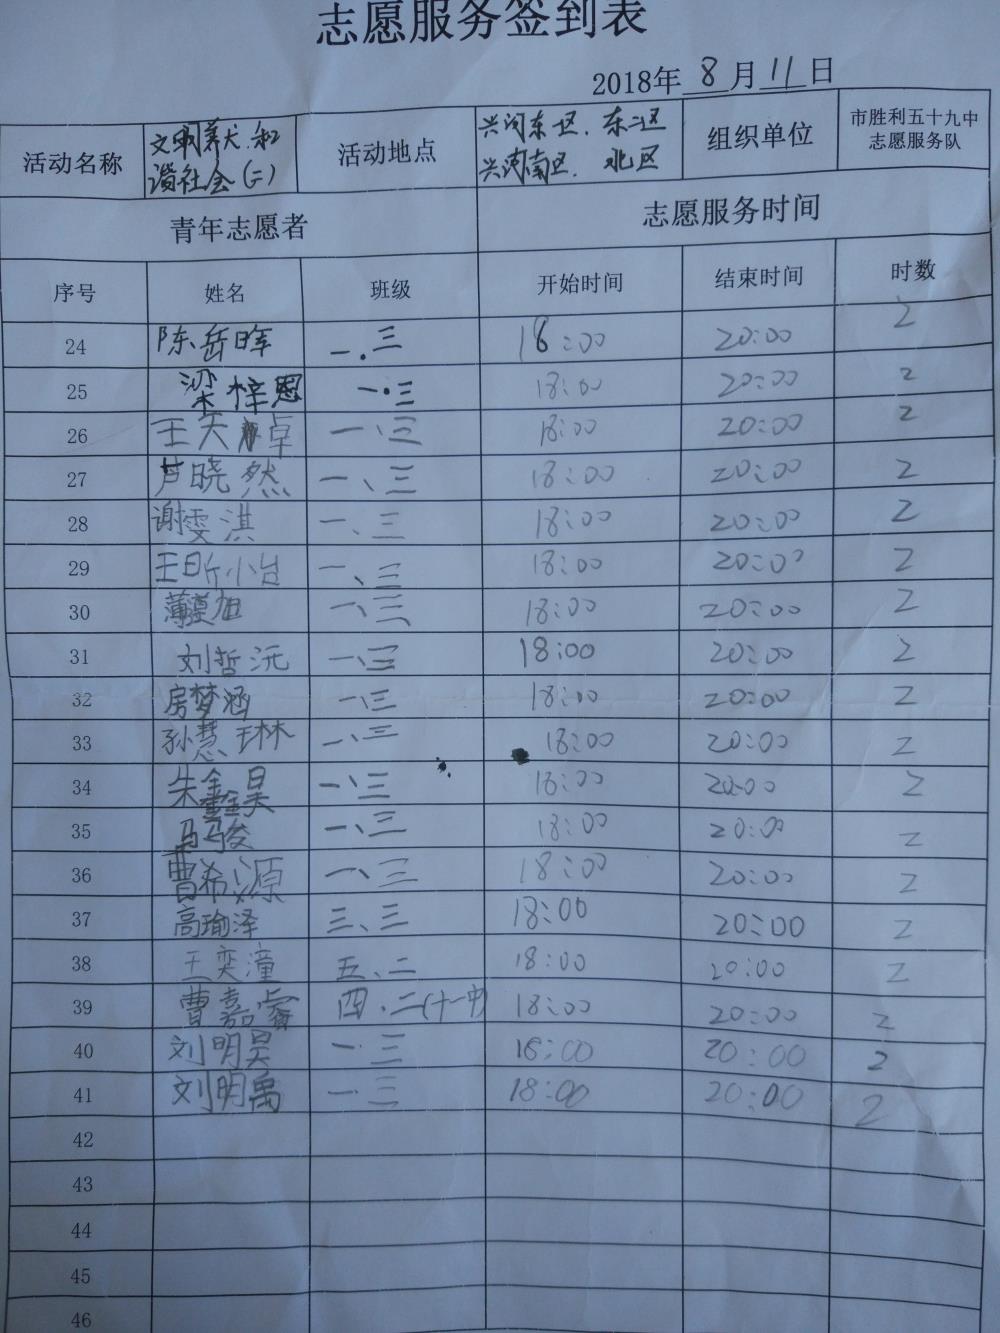 志愿服务签到表
2018年 8 月 11 日
活动名称 文明养犬.和谐社会(二) 活动地点 兴河东区. 东二区 兴河南区. 北区 组织单位 市胜利五十九中志愿服务队
青年志愿者 志愿服务时间
序号 姓名 班级 开始时间 结束时间 时数
24 陈岳晖 一.三 18:00 20:00 2
25 梁梓恩 一.三 18:00 20:00 2
26 王天卓 一、三 18:00 20:00 2
27 芦晓然 一、三 18:00 20:00 2
28 谢雯淇 一、三 18:00 20:00 2
29 王昕怡 一、三 18:00 20:00 2
30 薄 旭 一、三 18:00 20:00 2
31 刘哲沅 一、三 18:00 20:00 2
32 房梦涵 一、三 18:00 20:00 2
33 孙慧琳 一、三 18:00 20:00 2
34 朱鑫昊 一、三 18:00 20:00 2
35 马骏 一、三 18:00 20:00 2
36 曹希源 一、三 18:00 20:00 2
37 高瑜泽 三、三 18:00 20:00 2
38 王奕潼 五、二 18:00 20:00 2
39 曹嘉睿 四.二(十一中) 18:00 20:00 2
40 刘明昊 一.三 18:00 20:00 2
41 刘明禹 一.三 18:00 20:00 2
42
43
44
45
46